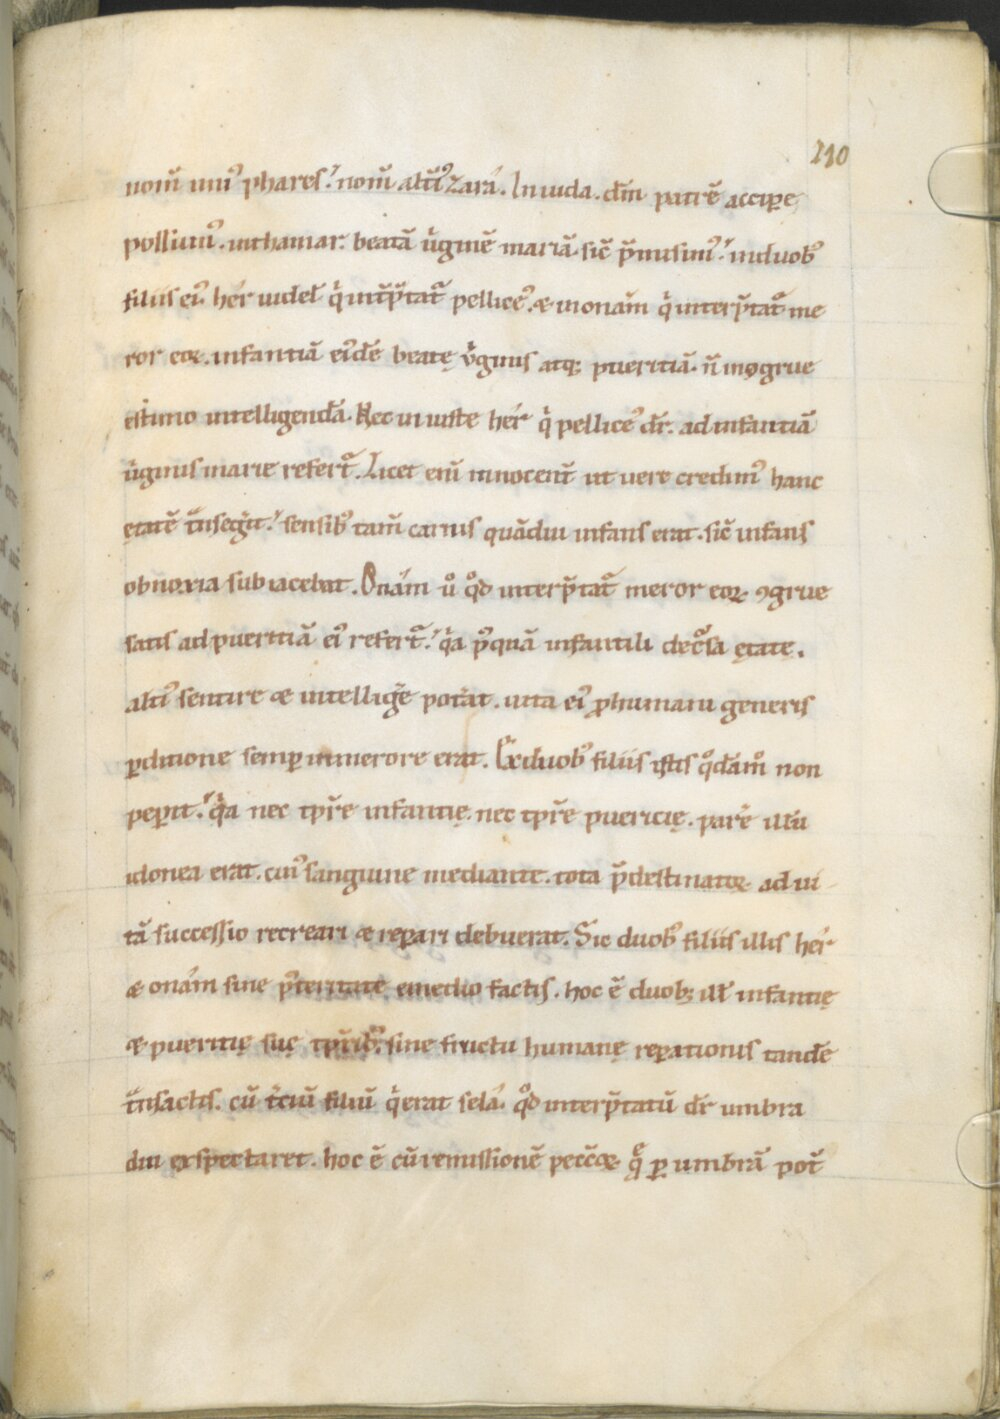 110
nom̄ uniꝰ phares. nom̄ altīꝰ zará. In iuda. dm̄ patrē accipe
polliciti. in thamar. beatā ũginē mariā. sic̄ p̄misimꝰ. in duobꝰ
filiis eiꝰ. hér uidel̄ q̇ int̄p̄tat᷑ pelliceꝰ. ⁊ in onám q̇ interp̄tat᷑ me
ror eoꝝ. infantiā eiꝰdē beatę v̄ginis atq; pueritiā. n̄ ingrue
estimo intelligendā. Nec iniuste hér q̇ pelliceꝰ dr̄. ad infantiā
ũginis marie refert᷑. Licet eni̅ innocent̄ ut uere credimꝰ hanc
ętatē t̄nsegit. sensibꝰ tam̄ carnis quādiu infans erat. sic̄ infans
obnoxia subiacebat. Onám u̇ qd̊ interp̄tat᷑ meror eoꝝ ꝯgrue
satis ad pueritiā eiꝰ refert᷑. q̇a pꝰquā infantili dec̄sa ętate.
altiꝰ sentire ⁊ intelliḡe pot̄at. uita eiꝰ ꝓ humani generis
ꝑditione semꝑ in merore erat. Ex duobꝰ filiis istis qd̊am̊ non
peꝑit. q̇a nec tpr̄e infantię. nec tpr̄e puericię. par̄e illū
idonea erat. cuiꝰ sanguine mediante. tota p̄destinatoꝝ ad ui
tā successio recreari ⁊ reꝑari debuerat. Sic duobꝰ filiis illis hér
⁊ onám sine p̄teritate e medio factis. hoc ē duob; ill̄ infantię
⁊ pueritię suę tpr̄ibꝰ. sine fructu humanę reꝑationis tandē
t̄nsactis. cū t̄ciū filiū q̇ erat selá. qd̊ interp̄tatū dr̄ umbra
diu exspectaret. hoc ē cū remissionē pecc̄oꝝ q̄ ꝑ umbrā pot̄